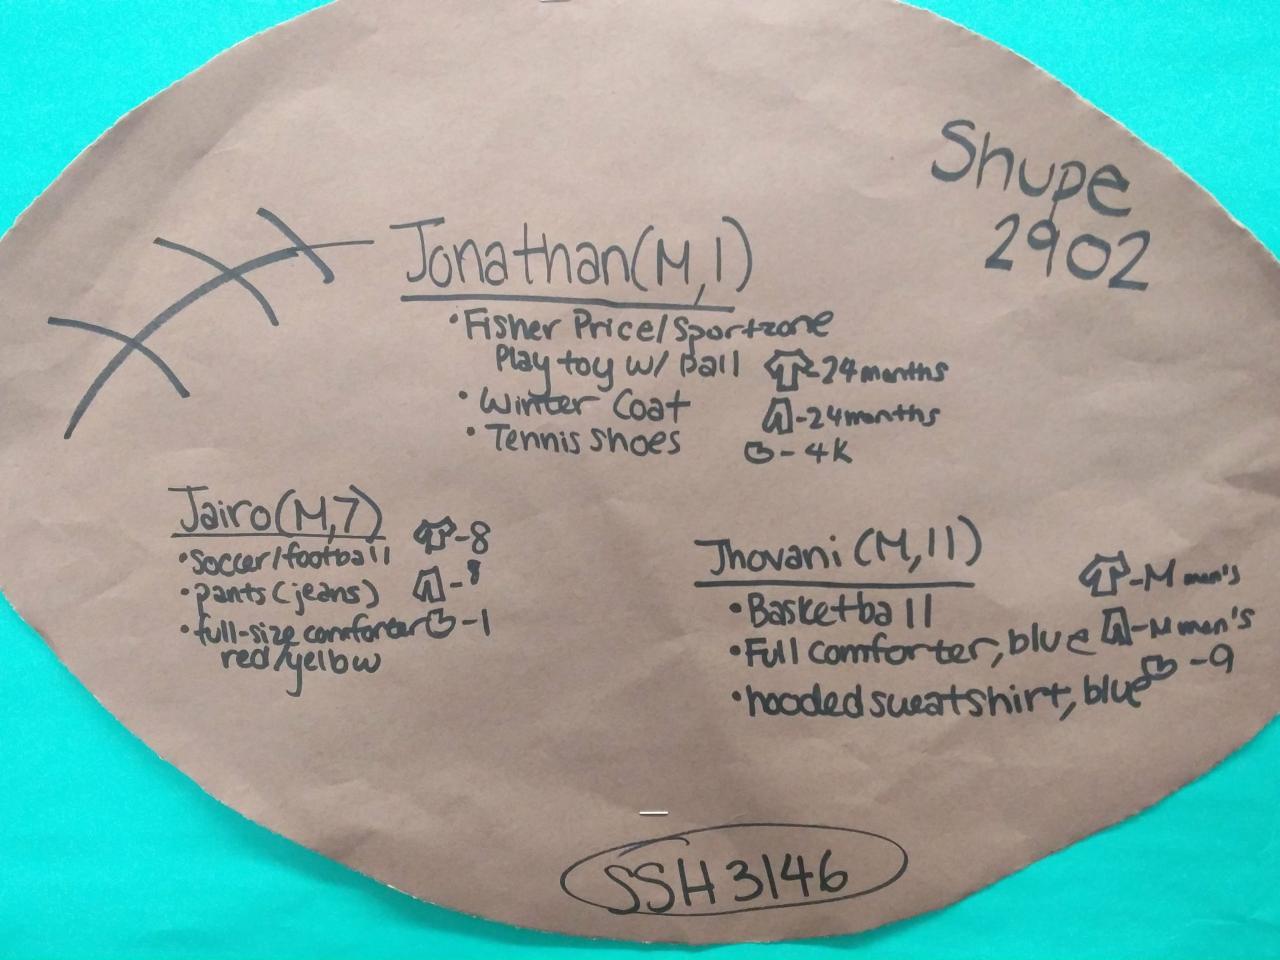 Shupe
2902
Jonathan (M, 1)
• Fisher Price/Sportzone
Play toy w/ Ball
-24 months
• Winter Coat
-24 months
• Tennis shoes
-4K
Jairo (M, 7)
-8
• soccer/football
• pants (jeans)
-8
• full-size comforter
-1
red/yellow
Jhovani (M, 11)
-M men's
• Basketball
• Full comforter, blue
-M men's
• hooded sweatshirt, blue
-9
SSH 3146